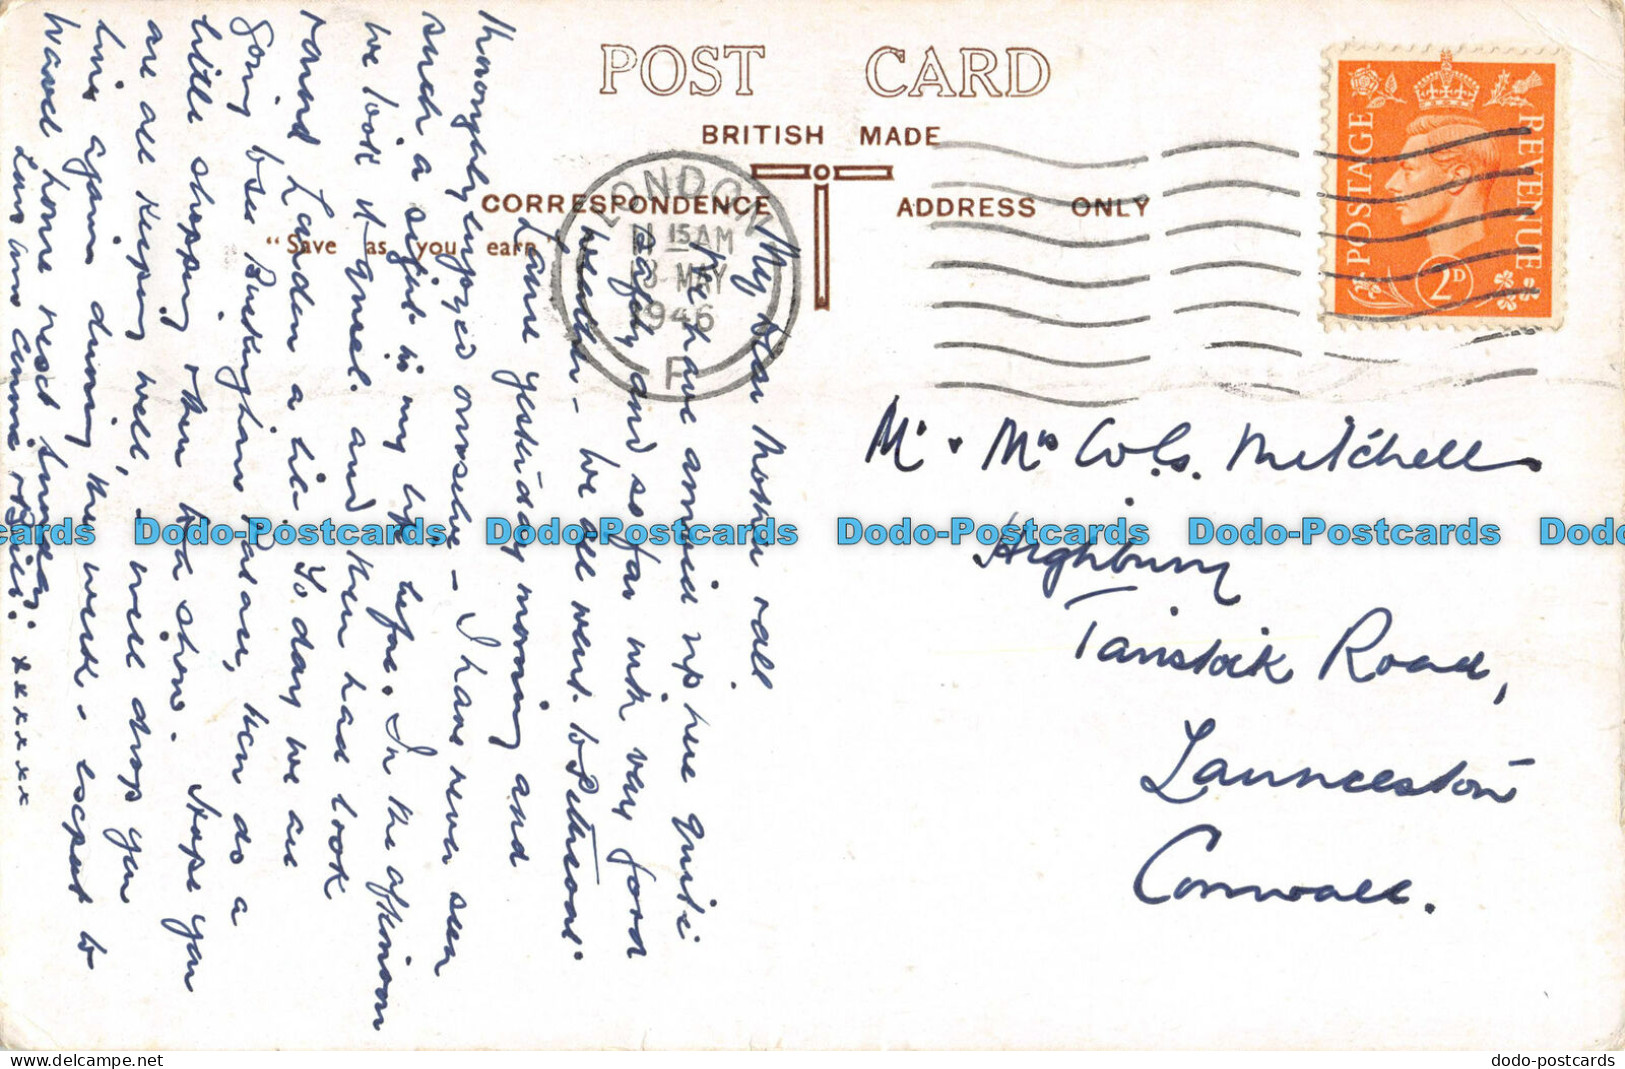 POST CARD
BRITISH MADE
CORRESPONDENCE
ADDRESS ONLY
"Save as you earn
LONDON
15 AM
MAY
1946
F
POSTAGE
REVENUE
2D
My dear Mother & all
We have arrived up here quite
safely and so far with very good
weather - We all went to Petticoat
Lane yesterday morning and
thoroughly enjoyed ourselves - I have never seen
such a sight in my life before. In the afternoon
we look at and then had look
round London a bit. To day we are
going to see Buckingham Palace, then do a
little shopping & then to a show. Hope you
are all keeping well, & will drop you
line again during the week - expect to
travel home next Sunday.
Love & x x x x x x
Mr & Mrs Mitchell
Highbury
Tavistock Road,
Launceston
Cornwall.
Dodo-Postcards Dodo-Postcards Dodo-Postcards Dodo-Postcards Dodo-Postcards
dodo-postcards
dodo-postcards.com